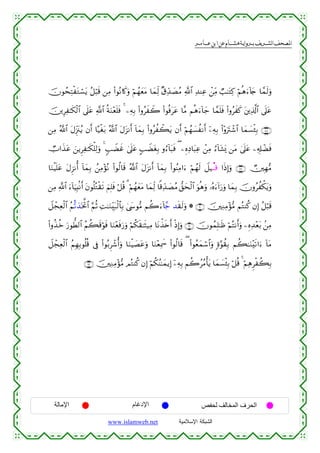 المصحف الشريف برواية هشام عن ابن عامر
وَلَمَّا جَآءَهُمْ كِتَٰبٌ مِّنْ عِندِ ٱللَّهِ مُصَدِّقٌ لِّمَا مَعَهُمْ وَكَانُوا۟ مِن قَبْلُ يَسْتَفْتِحُونَ
عَلَى ٱلَّذِينَ كَفَرُوا۟ فَلَمَّا جَآءَهُم مَّا عَرَفُوا۟ كَفَرُوا۟ بِهِۦ ۚ فَلَعْنَةُ ٱللَّهِ عَلَى ٱلْكَٰفِرِينَ
بِئْسَمَا ٱشْتَرَوْا۟ بِهِۦٓ أَنفُسَهُمْ أَن يَكْفُرُوا۟ بِمَآ أَنزَلَ ٱللَّهُ بَغْيًا أَن يُنَزِّلَ ٱللَّهُ مِن
فَضْلِهِۦ عَلَىٰ مَن يَشَآءُ مِنْ عِبَادِهِۦ ۖ فَبَآءُو بِغَضَبٍ عَلَىٰ غَضَبٍ ۚ وَلِلْكَٰفِرِينَ عَذَابٌ
مُّهِينٌ وَإِذَا قِيلَ لَهُمْ ءَامِنُوا۟ بِمَآ أَنزَلَ ٱللَّهُ قَالُوا۟ نُؤْمِنُ بِمَآ أُنزِلَ عَلَيْنَا
وَيَكْفُرُونَ بِمَا وَرَآءَهُۥ وَهُوَ ٱلْحَقُّ مُصَدِّقًا لِّمَا مَعَهُمْ ۗ قُلْ فَلِمَ تَقْتُلُونَ أَنۢبِيَآءَ ٱللَّهِ مِن
قَبْلُ إِن كُنتُم مُّؤْمِنِينَ ۞ وَلَقَد جَّآءَكُم مُّوسَىٰ بِٱلْبَيِّنَٰتِ ثُمَّ ٱتَّخَذتُّمُ ٱلْعِجْلَ
مِنۢ بَعْدِهِۦ وَأَنتُمْ ظَٰلِمُونَ وَإِذْ أَخَذْنَا مِيثَٰقَكُمْ وَرَفَعْنَا فَوْقَكُمُ ٱلطُّورَ خُذُوا۟
مَآ ءَاتَيْنَٰكُم بِقُوَّةٍ وَٱسْمَعُوا۟ ۖ قَالُوا۟ سَمِعْنَا وَعَصَيْنَا وَأُشْرِبُوا۟ فِى قُلُوبِهِمُ ٱلْعِجْلَ
بِكُفْرِهِمْ ۚ قُلْ بِئْسَمَا يَأْمُرُكُم بِهِۦٓ إِيمَٰنُكُمْ إِن كُنتُم مُّؤْمِنِينَ
الحرف المخالف لحفص الإدغام الإمالة
الشبكة الإسلامية www.islamweb.net